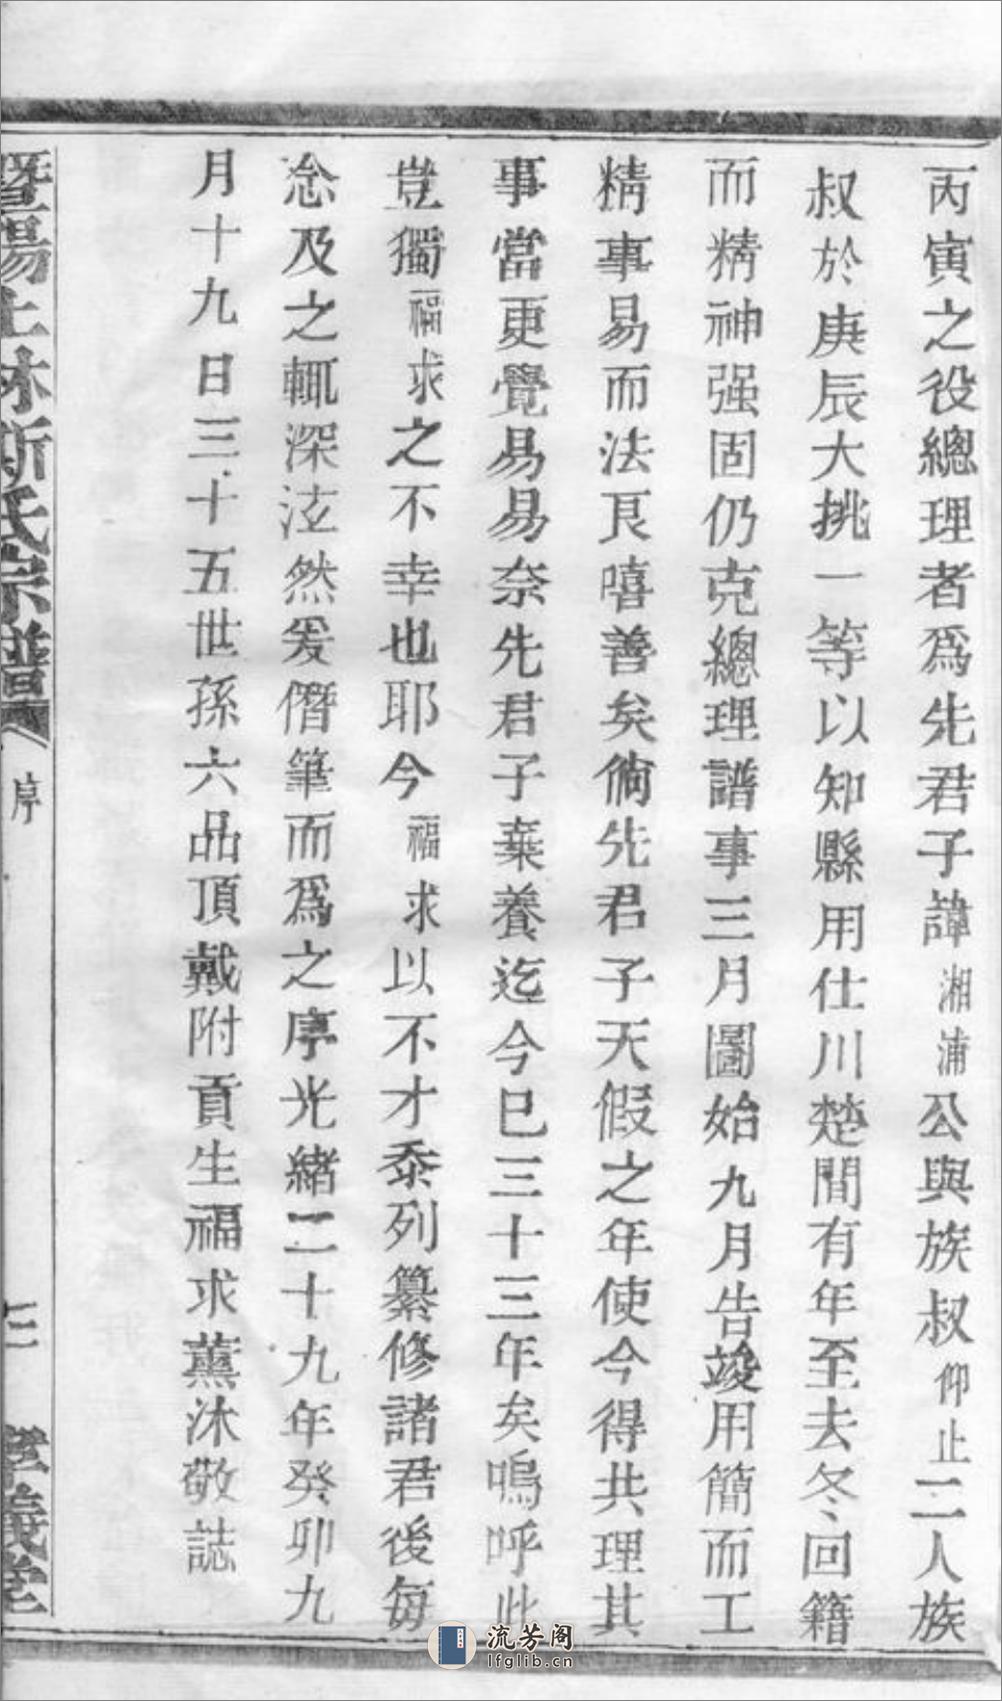 丙寅之役總理者爲先君子諱湘浦公與族叔仰止二人族
叔於庚辰大挑一等以知縣用仕川楚間有年至去冬回籍
而精神强固仍克總理譜事三月圖始九月告竣用簡而工
精事易而法良嘻善矣倘先君子天假之年使今得共理其
事當更覺易易奈先君子棄養迄今已三十三年矣嗚呼此
豈獨福求之不幸也耶今福求以不才忝列纂修諸君後每
念及之輒深泫然爰僭筆而爲之序光緒二十九年癸卯九
月十九日三十五世孫六品頂戴附貢生福求薰沐敬誌
暨陽上林斯氏宗譜 序 孝義堂
流芳阁
lfglib.cn